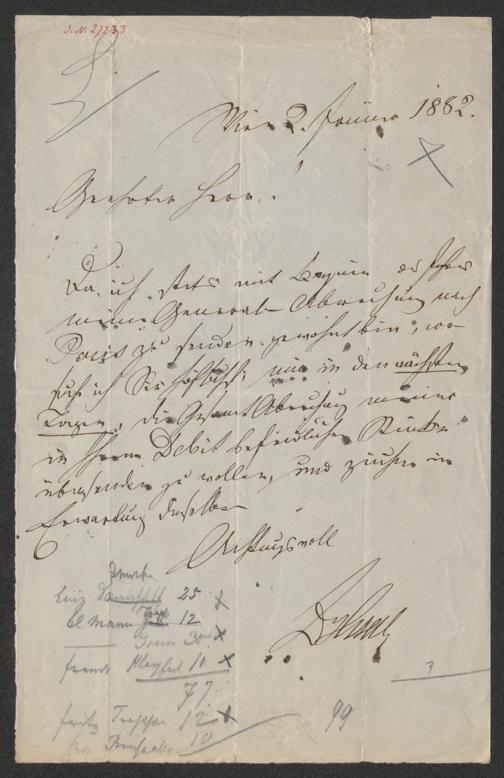 J.N. 27233
Wien 2. Jänner 1882.
Geehrter Herr!
Da ich stets mit Beginn des Jahres
meine General-Abrechnung nach
Paris zu senden gewohnt bin, er-
suche ich Sie höflichst, mir in den nächsten
Tagen, die Gesammt Abrechnung meiner
in Ihrem Debit befindlichen Stücke
übersenden zu wollen, und zeichne in
Erwartung derselben
Achtungsvoll
25 x
bl Mann 12
30 x
10 x
77
fritz 12 x
10
99
3